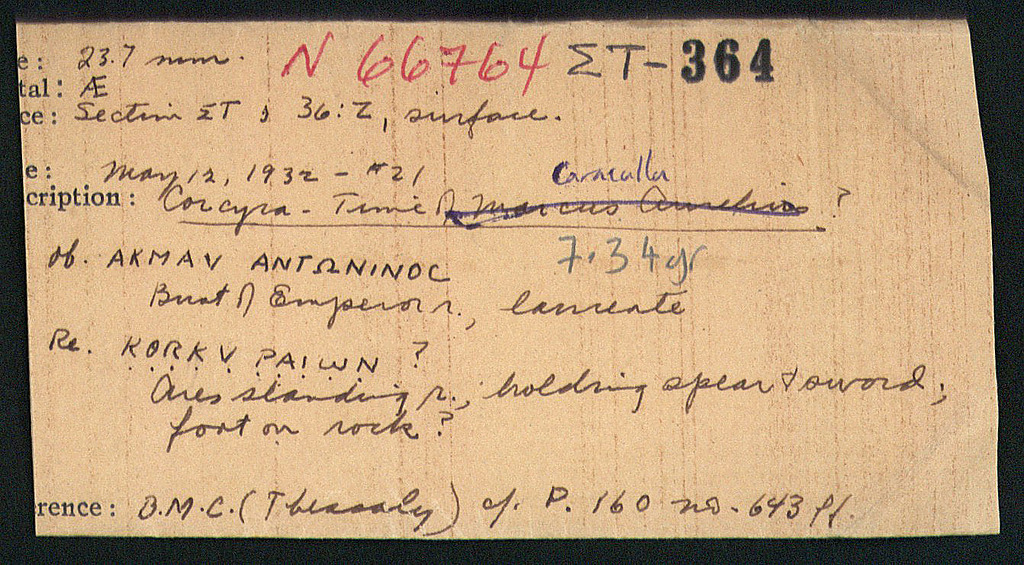 e: 23.7 mm. N 66764 ΣΤ-364
tal: Æ
ce: Section ΣΤ, 36:Z, surface.
e: May 12, 1932 - #21
Caracalla
cription: Corcyra - Time of Marcus Aurelius ?
7.34 gr
Ob. ΑΚΜΑV ΑΝΤΩΝΙΝΟC
Bust of Emperor r., laureate
Re. ΚΟRΚV ΡΑΙWΝ ?
Ares standing r., holding spear & sword;
foot on rock?
rence: B.M.C. (Thessaly) cf. P. 160 no. 643 ff.